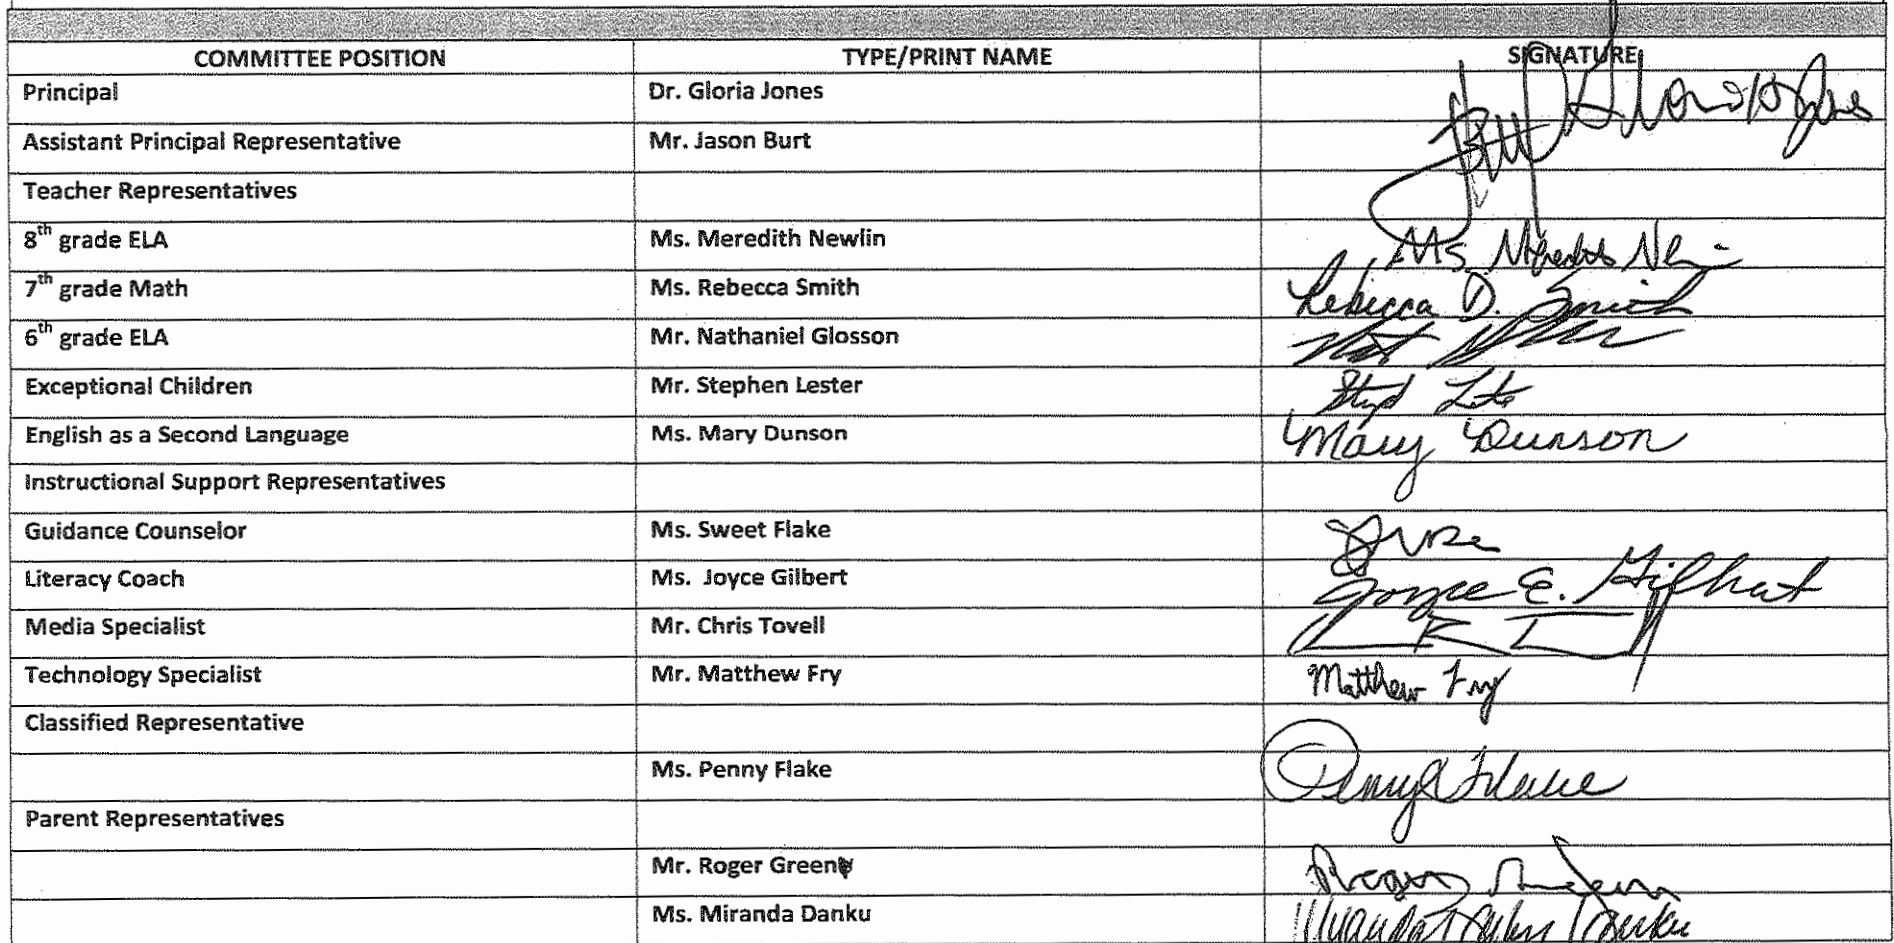 COMMITTEE POSITION TYPE/PRINT NAME SIGNATURE
Principal Dr. Gloria Jones
Assistant Principal Representative Mr. Jason Burt
Teacher Representatives
8th grade ELA Ms. Meredith Newlin Ms Meredith
7th grade Math Ms. Rebecca Smith Rebecca D. Smith
6th grade ELA Mr. Nathaniel Glosson Nat
Exceptional Children Mr. Stephen Lester
English as a Second Language Ms. Mary Dunson Mary Dunson
Instructional Support Representatives
Guidance Counselor Ms. Sweet Flake
Literacy Coach Ms. Joyce Gilbert Joyce E. Gilbert
Media Specialist Mr. Chris Tovell
Technology Specialist Mr. Matthew Fry Matthew Fry
Classified Representative
Ms. Penny Flake Penny Flake
Parent Representatives
Mr. Roger Roger
Ms. Miranda Danku Danku